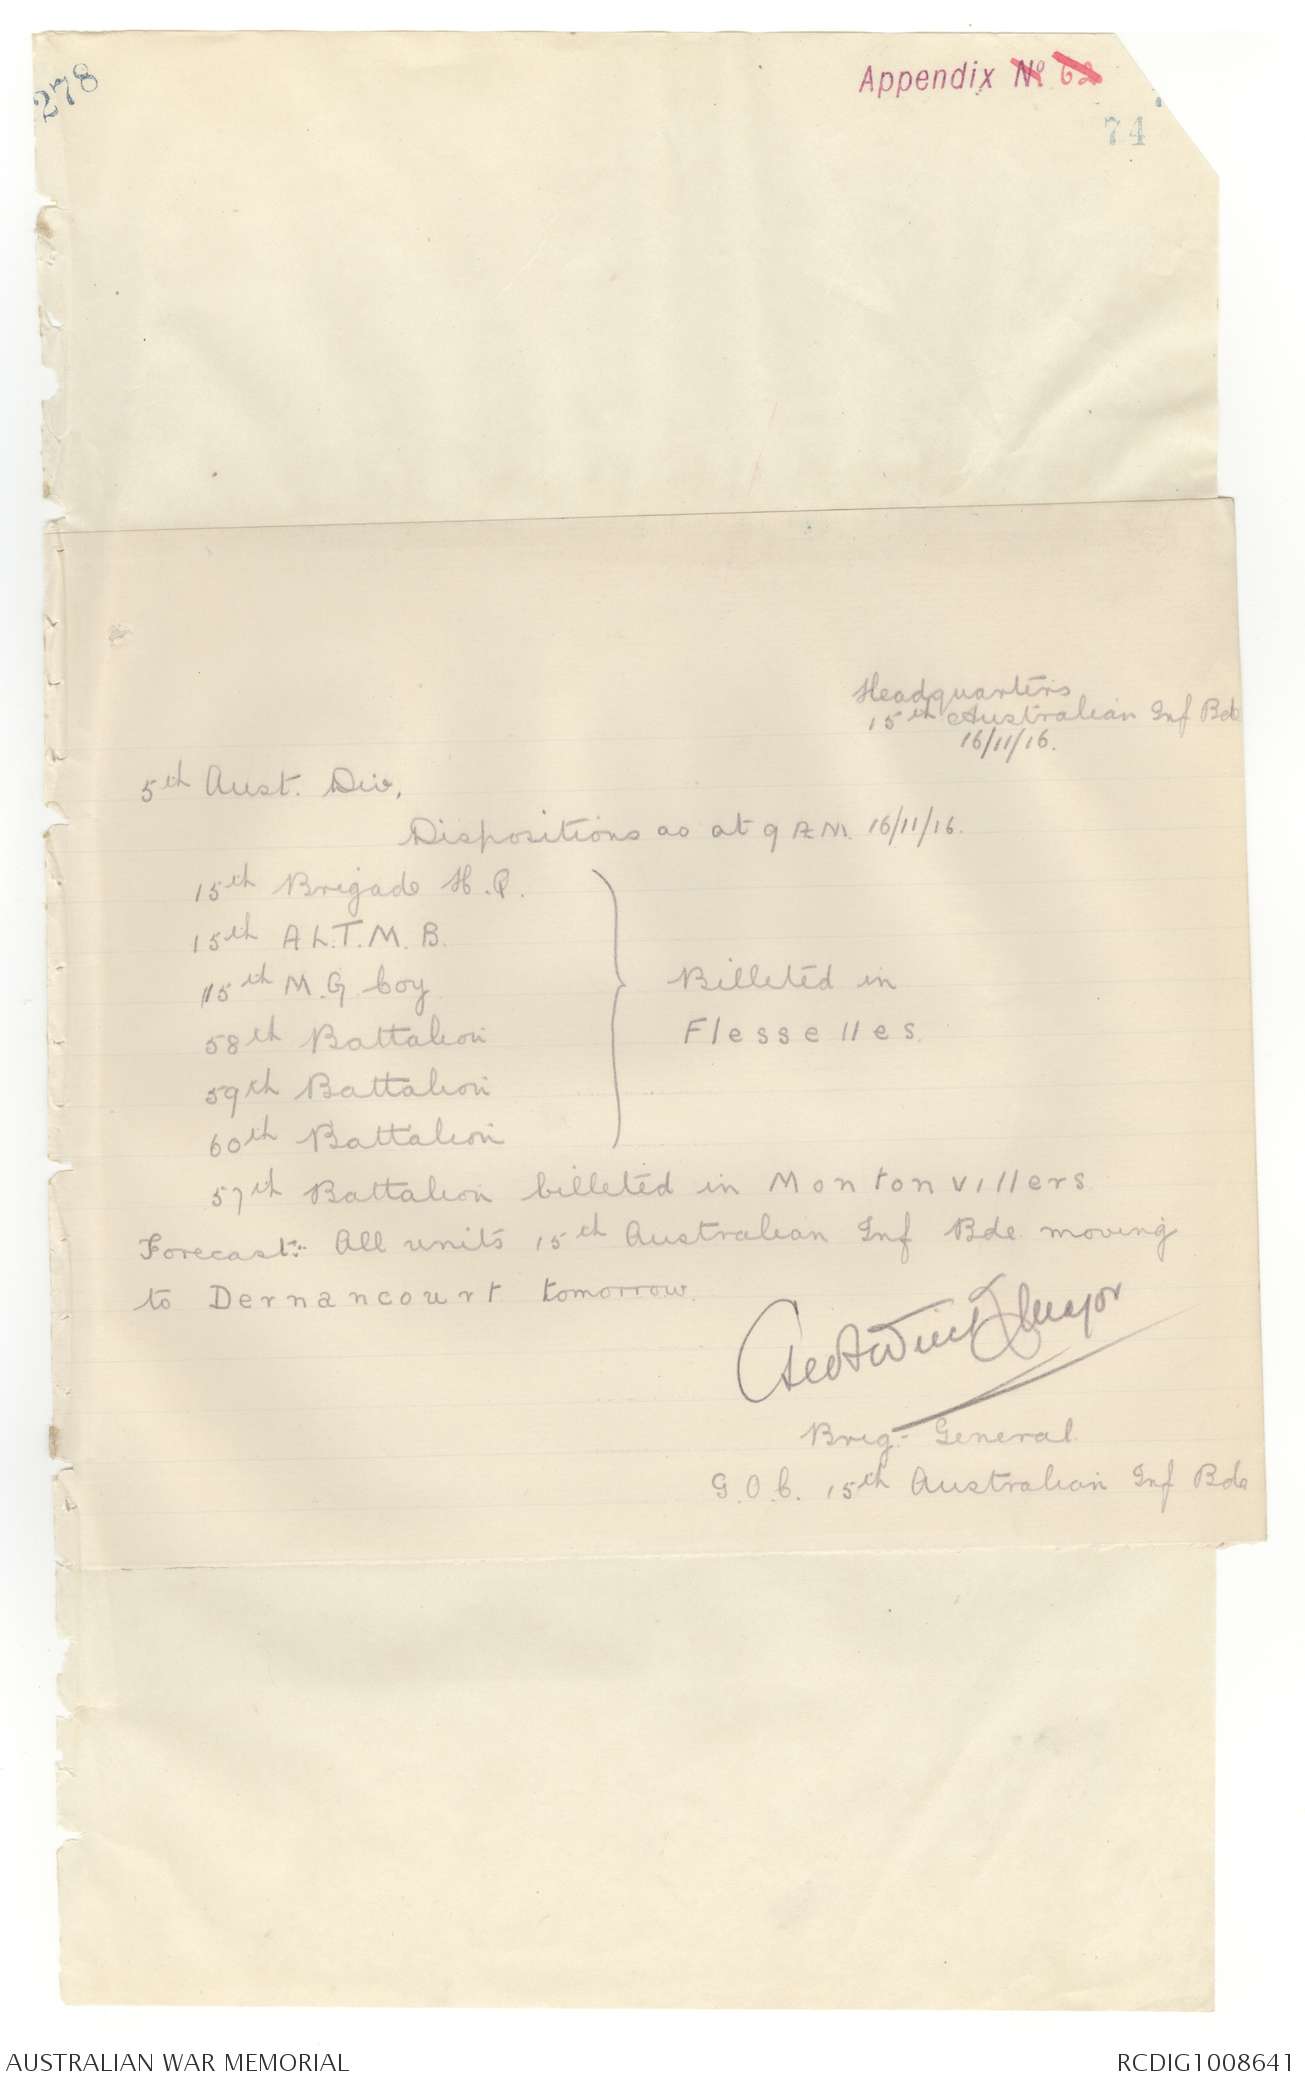 278
Appendix No 62
74
Headquarters
15th Australian Inf Bde
16/11/16.
5th Aust. Div.
Dispositions as at 9 A.M. 16/11/16.
15th Brigade H.Q.
15th A L.T.M.B.
15th M.G. Coy
58th Battalion
59th Battalion
60th Battalion
Billeted in
Flesselles.
57th Battalion billeted in Montonvillers
Forecast:- All units 15th Australian Inf Bde moving
to Dernancourt tomorrow.
Major
Brig.- General
G.O.C. 15th Australian Inf Bde
AUSTRALIAN WAR MEMORIAL
RCDIG1008641